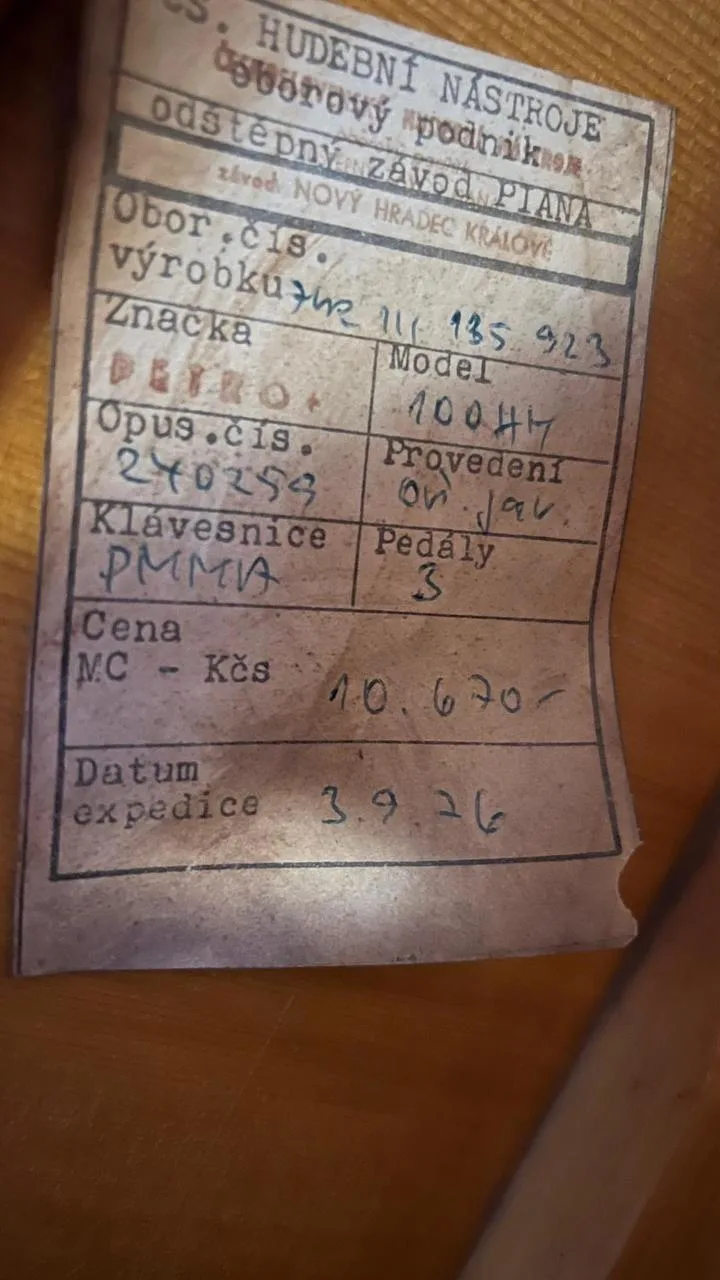 ČS. HUDEBNÍ NÁSTROJE
oborový podnik
odštěpný závod PIANA
závod NOVÝ HRADEC KRÁLOVÉ
Obor.čís.
výrobku 111 135 923
Značka
PETROF
Model
100HH
Opus.čís.
240259
Provedení
oř. jav.
Klávesnice
PMMA
Pedály
3
Cena
MC - Kčs 10.670-
Datum
expedice 3.9.76